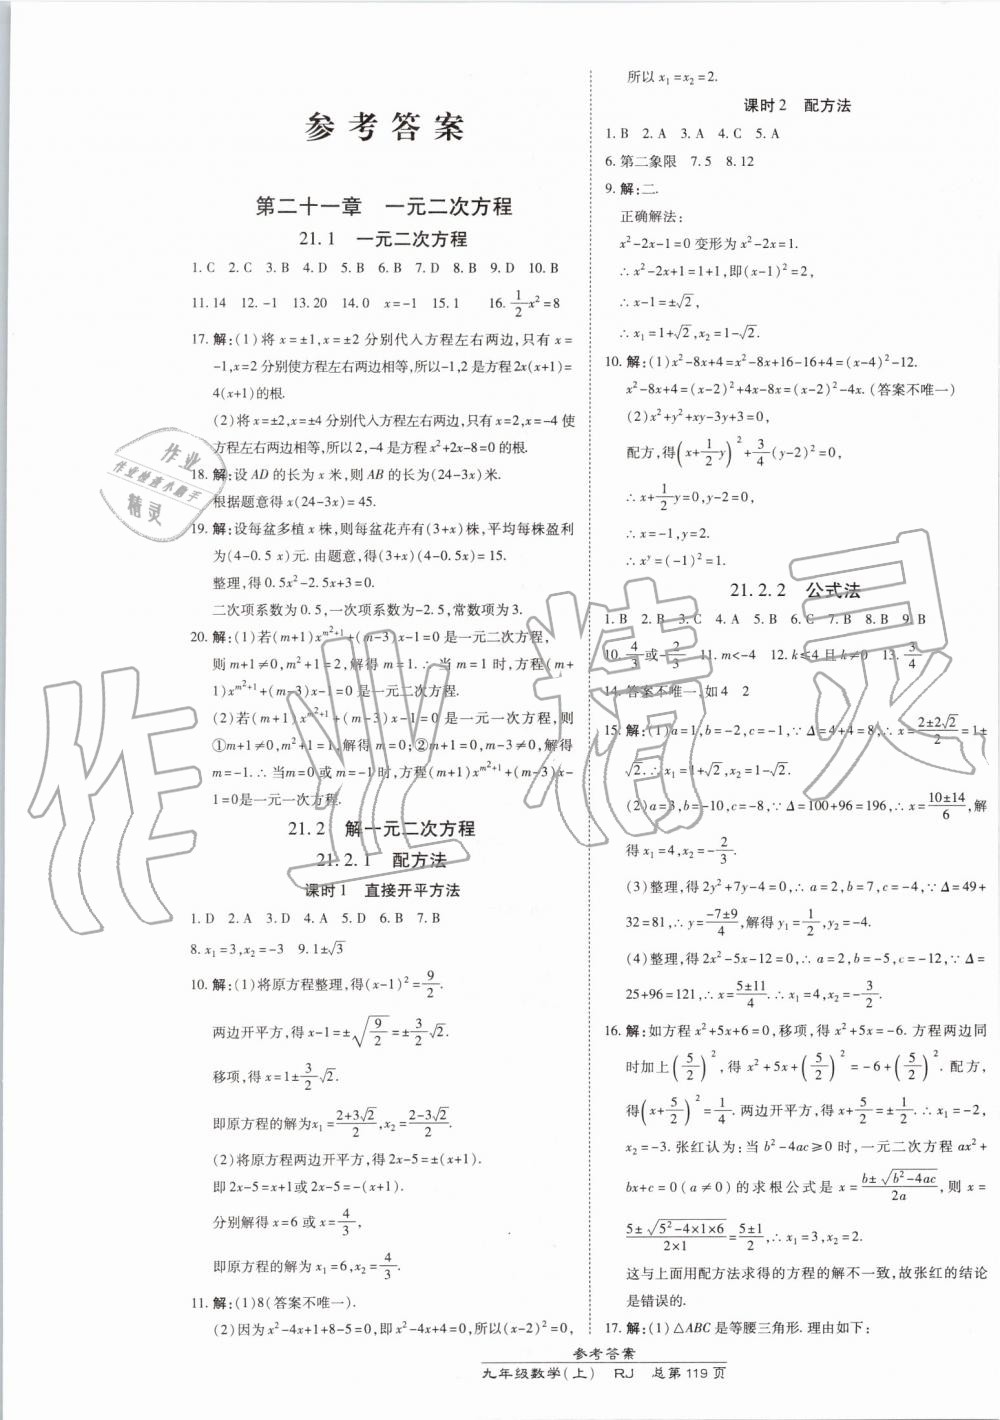 参考答案
第二十一章 一元二次方程
21.1 一元二次方程
1.C 2.C 3.B 4.D 5.B 6.B 7.D 8.B 9.D 10.B
11.14 12.-1 13.20 14.0 x=-1 15.1 16.\frac{1}{2}x²=8
17.解:(1)将x=±1,x=±2分别代入方程左右两边,只有x=
-1,x=2分别使方程左右两边相等,所以-1,2是方程2x(x+1)=
4(x+1)的根.
(2)将x=±2,x=±4分别代入方程左右两边,只有x=2,x=-4使
方程左右两边相等,所以2,-4是方程x²+2x-8=0的根.
18.解:设AD的长为x米,则AB的长为(24-3x)米.
根据题意得x(24-3x)=45.
19.解:设每盆多植x株,则每盆花卉有(3+x)株,平均每株盈利
为(4-0.5 x)元.由题意,得(3+x)(4-0.5x)=15.
整理,得0.5x²-2.5x+3=0.
二次项系数为0.5,一次项系数为-2.5,常数项为3.
20.解:(1)若(m+1)x^{m²+1}+(m-3)x-1=0是一元二次方程,
则m+1≠0,m²+1=2,解得m=1.∴当m=1时,方程(m+
1)x^{m²+1}+(m-3)x-1=0是一元二次方程.
(2)若(m+1)x^{m²+1}+(m-3)x-1=0是一元一次方程,则
①m+1≠0,m²+1=1,解得m=0;②m+1=0,m-3≠0,解得
m=-1.∴当m=0或m=-1时,方程(m+1)x^{m²+1}+(m-3)x-
1=0是一元一次方程.
21.2 解一元二次方程
21.2.1 配方法
课时1 直接开平方法
1.D 2.A 3.D 4.A 5.D 6.B 7.B
8.x₁=3,x₂=-3 9.1±√3
10.解:(1)将原方程整理,得(x-1)²=\frac{9}{2}.
两边开平方,得x-1=±\sqrt{\frac{9}{2}}=±\frac{3}{2}√2.
移项,得x=1±\frac{3}{2}√2.
即原方程的解为x₁=\frac{2+3√2}{2},x₂=\frac{2-3√2}{2}.
(2)将原方程两边开平方,得2x-5=±(x+1).
即2x-5=x+1或2x-5=-(x+1).
分别解得x=6或x=\frac{4}{3},
即原方程的解为x₁=6,x₂=\frac{4}{3}.
11.解:(1)8(答案不唯一).
(2)因为x²-4x+1+8-5=0,即x²-4x+4=0,所以(x-2)²=0,
所以x₁=x₂=2.
课时2 配方法
1.B 2.A 3.A 4.C 5.A
6.第二象限 7.5 8.12
9.解:二.
正确解法:
x²-2x-1=0变形为x²-2x=1.
∴x²-2x+1=1+1,即(x-1)²=2,
∴x-1=±√2,
∴x₁=1+√2,x₂=1-√2.
10.解:(1)x²-8x+4=x²-8x+16-16+4=(x-4)²-12.
x²-8x+4=(x-2)²+4x-8x=(x-2)²-4x.(答案不唯一)
(2)x²+y²+xy-3y+3=0,
配方,得(x+\frac{1}{2}y)²+\frac{3}{4}(y-2)²=0,
∴x+\frac{1}{2}y=0,y-2=0,
∴x=-1,y=2.
∴x^y=(-1)²=1.
21.2.2 公式法
1.B 2.B 3.C 4.A 5.B 6.C 7.B 8.B 9.B
10.\frac{4}{3}或-\frac{2}{3} 11.m<-4 12.k≤4且k≠0 13.\frac{3}{4}
14.答案不唯一,如4 2
15.解:(1)a=1,b=-2,c=-1,∵Δ=4+4=8,∴x=\frac{2±2√2}{2}=1±
√2.∴x₁=1+√2,x₂=1-√2.
(2)a=3,b=-10,c=-8,∵Δ=100+96=196,∴x=\frac{10±14}{6},解
得x₁=4,x₂=-\frac{2}{3}.
(3)整理,得2y²+7y-4=0,∴a=2,b=7,c=-4,∵Δ=49+
32=81,∴y=\frac{-7±9}{4},解得y₁=\frac{1}{2},y₂=-4.
(4)整理,得2x²-5x-12=0,∴a=2,b=-5,c=-12,∵Δ=
25+96=121,∴x=\frac{5±11}{4}.∴x₁=4,x₂=-\frac{3}{2}.
16.解:如方程x²+5x+6=0,移项,得x²+5x=-6.方程两边同
时加上(\frac{5}{2})²,得x²+5x+(\frac{5}{2})²=-6+(\frac{5}{2})².配方,
得(x+\frac{5}{2})²=\frac{1}{4}.两边开平方,得x+\frac{5}{2}=±\frac{1}{2}.∴x₁=-2,
x₂=-3.张红认为:当b²-4ac≥0时,一元二次方程ax²+
bx+c=0(a≠0)的求根公式是x=\frac{b±\sqrt{b²-4ac}}{2a},则x=
\frac{5±\sqrt{5²-4×1×6}}{2×1}=\frac{5±1}{2},∴x₁=3,x₂=2.
这与上面用配方法求得的方程的解不一致,故张红的结论
是错误的.
17.解:(1)△ABC是等腰三角形.理由如下:
参考答案
九年级数学(上) RJ 总第119页
作业精灵
作业
作业检查小助手
精灵